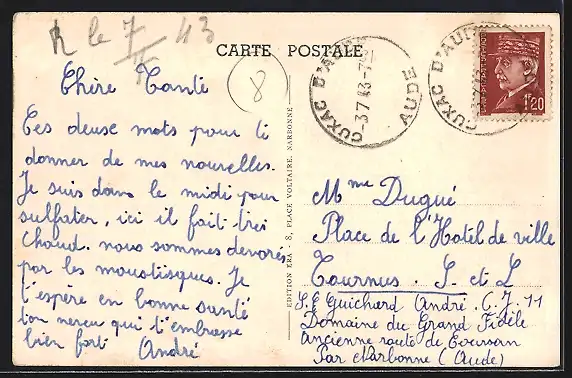 R le 7/7 43
CARTE POSTALE
8
Chère Tanté
Ces deuse mots pour ti
donner de mes nouvelles.
Je suis dans le midi pour
sulfater, ici il fait très
chaud. nous sommes dévorés
par les moustisques. Je
t'espère en bonne santé
ton neveu qui t'embrasse
bien fort André
EDITION ERA 8, PLACE VOLTAIRE, NARBONNE
CUXAC D'AUDE
AUDE
CUXAC D'AUDE
1F20
Mme Dugué
Place de l'Hotel de ville
Tournus. S. et L
S.E Guichard André. C.J. 11
Domaine du Grand Fidèle
Ancienne route de Coursan
Par Narbonne (Aude)